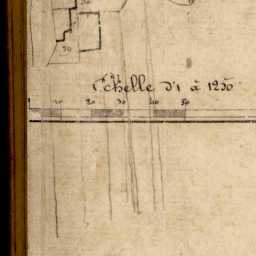 Echelle d'1 à 1250
10 20 30 40 50